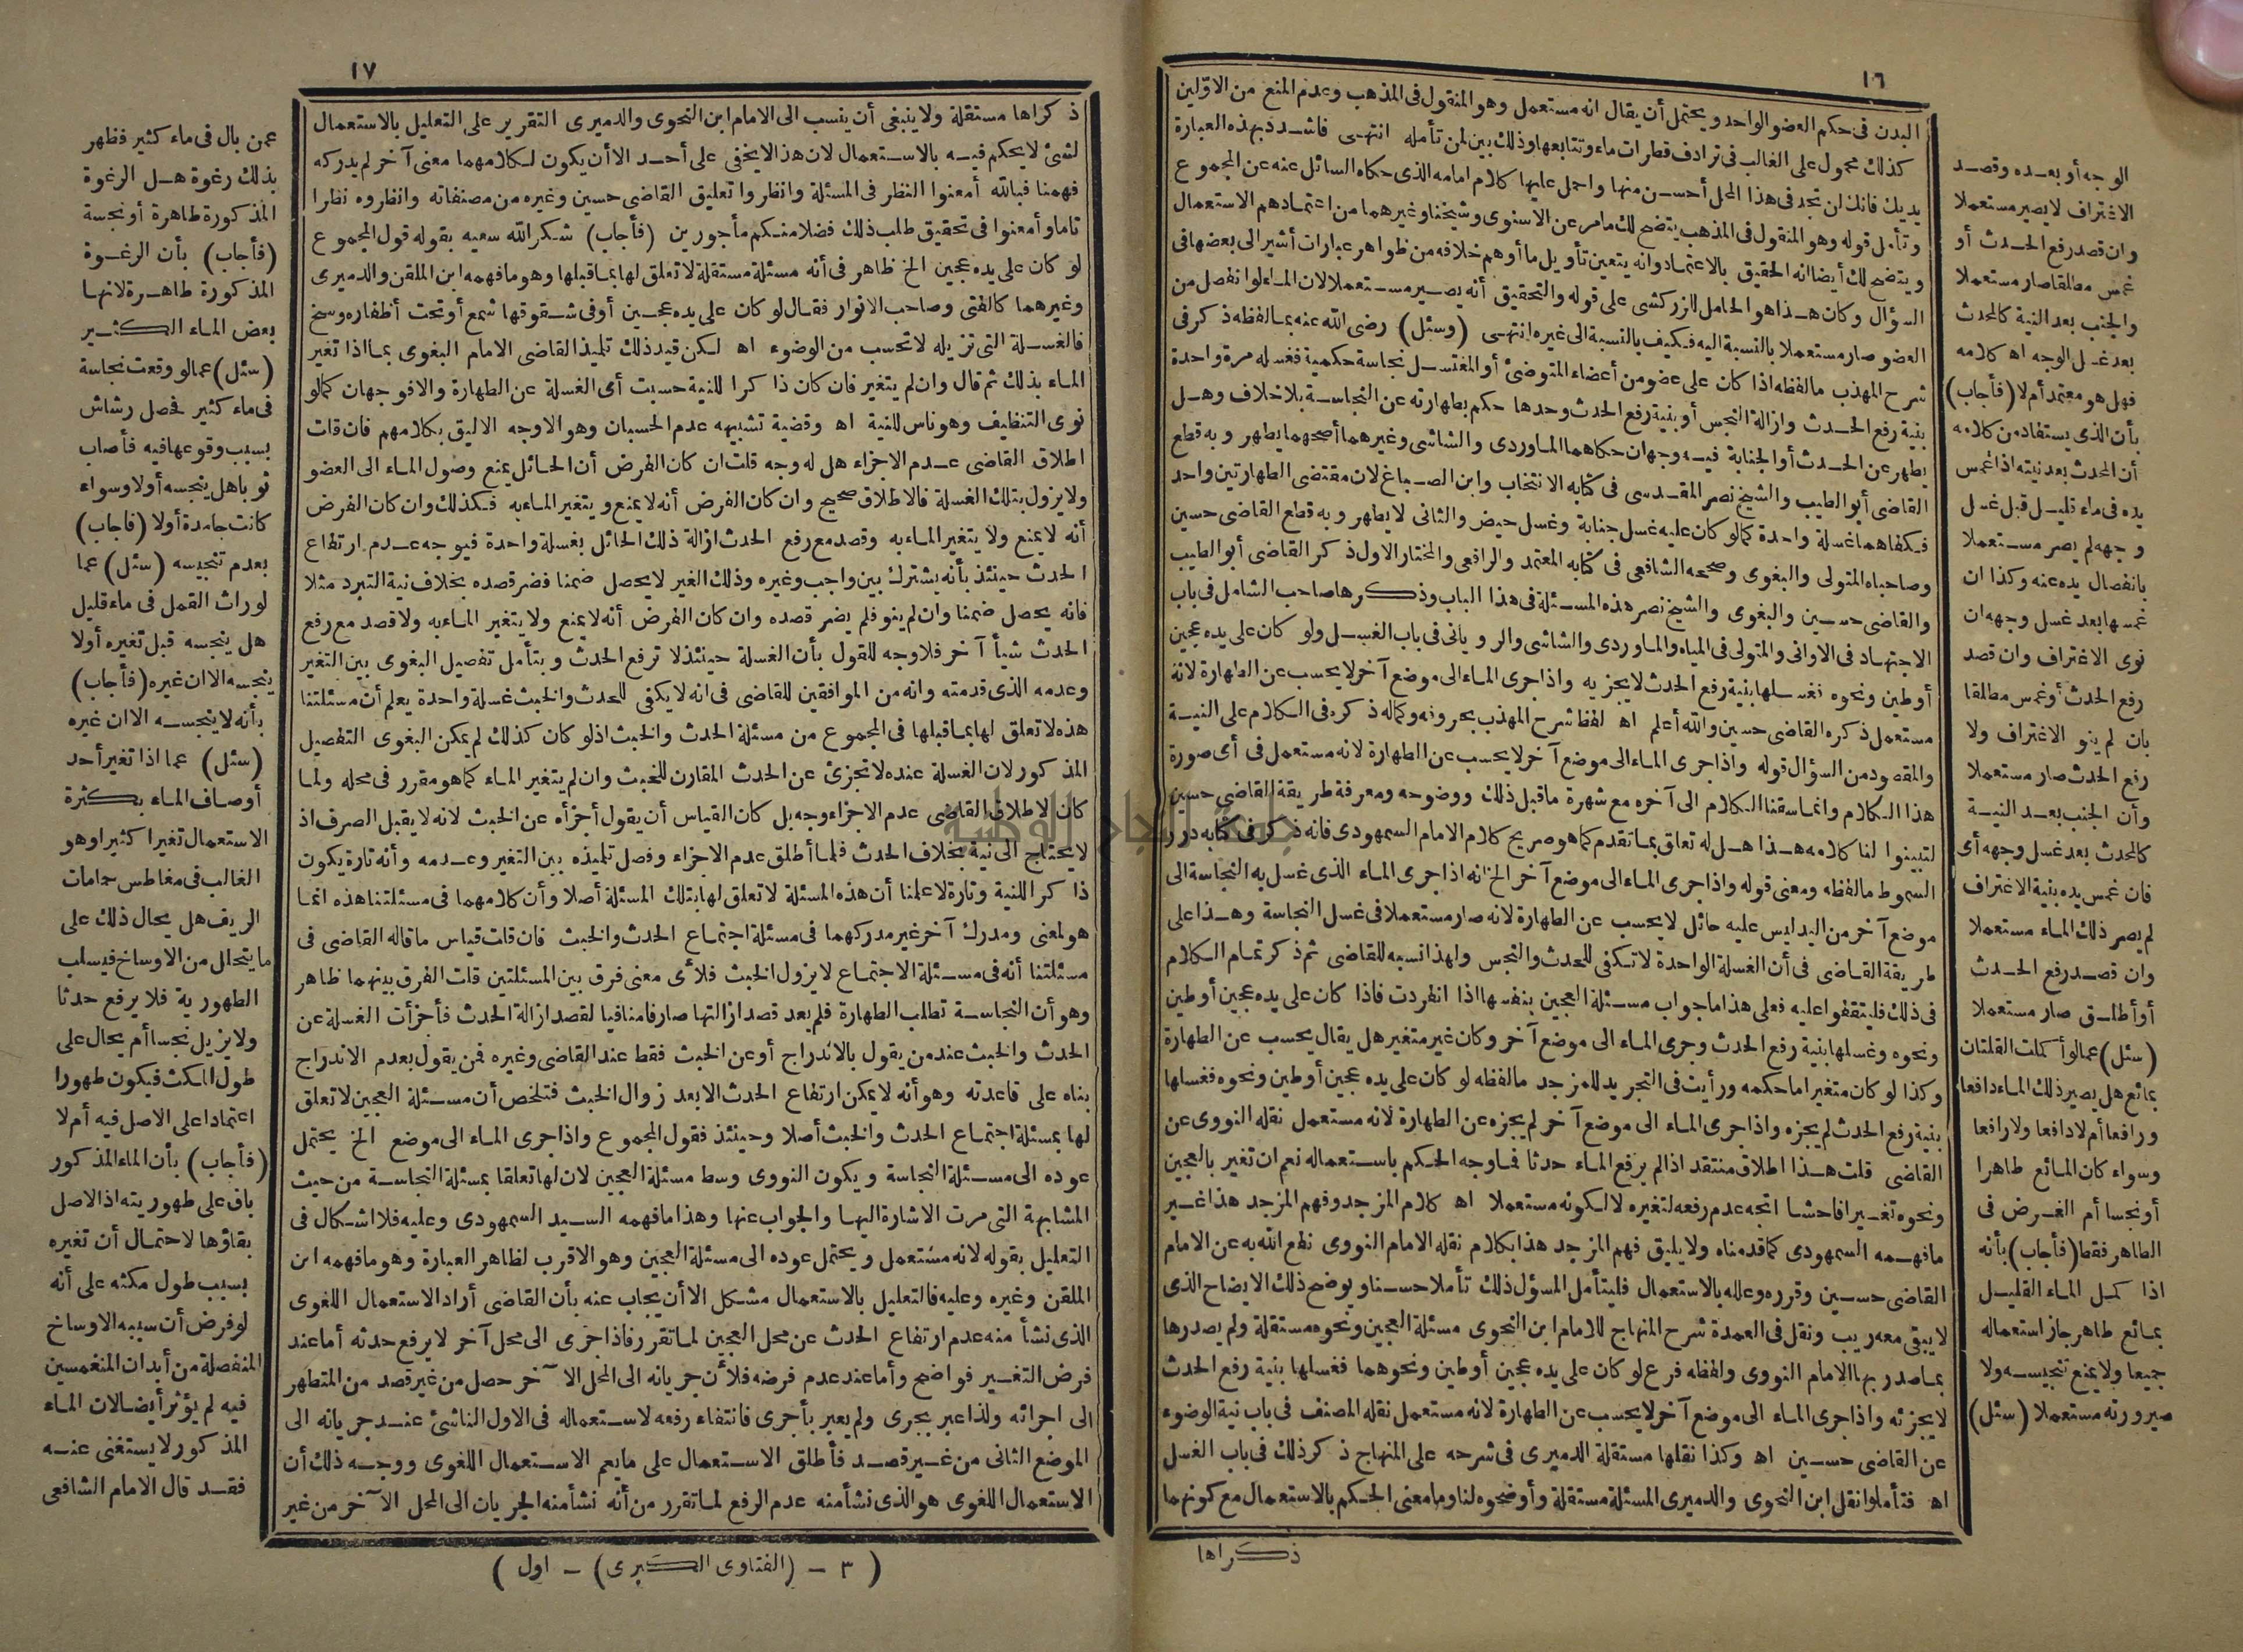 ١٦
البدن فى حكم العضو الواحد ويحتمل أن يقال انه مستعمل وهو المنقول فى المذهب وعدم المنع من الاوّلين
كذلك محمول على الغالب فى ترادف قطرات ماء وتتابعها وذلك بين لمن تأمله انتهى فاشدد بهذه العبارة
يديك فانك ان تجد فى هذا المحل أحسن منها واحمل عليها كلام امامه الذى حكاه السائل عنه عن المجموع
وتأمل قوله وهو المنقول فى المذهب يتضح لك ما مر عن الاسنوى وشيخنا وغيرهما من اعتمادهم الاستعمال
ويتضح لك أيضا انه الحقيق بالاعتماد وانه يتعين تأويل ما أوهم خلافه من ظواهر عبارات أشير الى بعضها فى
السؤال وكان هذا هو الحامل للزركشى على قوله والتحقيق أنه يصير مستعملا لان الماء لو انفصل من
العضو صار مستعملا بالنسبة اليه فكيف بالنسبة الى غيره انتهى (وسئل) رضى الله عنه بما لفظه ذكر فى
شرح المهذب ما لفظه اذا كان على عضو من أعضاء المتوضئ أو المغتسل نجاسة حكمية فغسله مرة واحدة
بنية رفع الحدث وازالة النجس أو بنية رفع الحدث وحدها حكم بطهارته عن النجاسة بلا خلاف وهل
يطهر عن الحدث أو الجنابة فيه وجهان حكاهما الماوردى والشاشى وغيرهما أصحهما يطهر وبه قطع
القاضى أبو الطيب والشيخ نصر المقدسى فى كتابه الانتخاب وابن الصباغ لان مقتضى الطهارتين واحد
فكفاهما غسلة واحدة كما لو كان عليه غسل جنابة وغسل حيض والثانى لا يطهر وبه قطع القاضى حسين
وصاحباه المتولى والبغوى وصححه الشافعى فى كتابه المعتمد والرافعى والمختار الاول ذكر القاضى أبو الطيب
والقاضى حسين والبغوى والشيخ نصر هذه المسئلة فى هذا الباب وذكرها صاحب الشامل فى باب
الاجتهاد فى الاوانى والمتولى فى المياه والماوردى والشاشى والرويانى فى باب الغسل ولو كان على يده عجين
أو طين ونحوه فغسلها بنية رفع الحدث لا يجزيه واذا جرى الماء الى موضع آخر لا يحسب عن الطهارة لانه
مستعمل ذكره القاضى حسين والله أعلم اه لفظ شرح المهذب بحروفه وكماله ذكره فى الكلام على النية
والمقصود من السؤال قوله واذا جرى الماء الى موضع آخر لا يحسب عن الطهارة لانه مستعمل فى أى صورة
هذا الكلام وانما سقنا الكلام الى آخره مع شهرة ما قبل ذلك ووضوحه ومعرفة طريقة القاضى حسين
لتبينوا لنا كلامه هذا هل له تعلق بما تقدم كما هو صريح كلام الامام السمهودى فانه ذكر فى كتابه درر
السموط ما لفظه ومعنى قوله واذا جرى الماء الى موضع آخر الخ انه اذا جرى الماء الذى غسل به النجاسة الى
موضع آخر من اليد ليس عليه حائل لا يحسب عن الطهارة لانه صار مستعملا فى غسل النجاسة وهذا على
طريقة القاضى فى أن الغسلة الواحدة لا تكفى للحدث والنجس ولهذا نسبه للقاضى ثم ذكر تمام الكلام
فى ذلك فليتقظوا عليه فعلى هذا ما جواب مسئلة العجين بنفسها اذا انفردت فاذا كان على يده عجين أو طين
ونحوه وغسلها بنية رفع الحدث وجرى الماء الى موضع آخر وكان غير متغير هل يقال يحسب عن الطهارة
وكذا لو كان متغيرا ما حكمه ورأيت فى التجريد للمزجد ما لفظه لو كان على يده عجين أو طين ونحوه فغسلها
بنية رفع الحدث لم يجزه واذا جرى الماء الى موضع آخر لم يجزه عن الطهارة لانه مستعمل نقله النووى عن
القاضى قلت هذا اطلاق منتقد اذا لم يرفع الماء حدثا فما وجه الحكم باستعماله نعم ان تغير بالعجين
ونحوه تغيرا فاحشا اتجه عدم رفعه لتغيره لا لكونه مستعملا اه كلام المزجد وفهم المزجد هذا غير
ما فهمه السمهودى كما قدمناه ولا يليق فهم المزجد هذا بكلام نقله الامام النووى نفع الله به عن الامام
القاضى حسين وقرره وعلله بالاستعمال فليتأمل المسؤل ذلك تأملا حسنا ويوضح ذلك الايضاح الذى
لا يبقى معه ريب ونقل فى العمدة شرح المنهاج للامام ابن النحوى مسئلة العجين ونحوه مستقلة ولم يصدرها
بما صدر بها الامام النووى ولفظه فرع لو كان على يده عجين أو طين ونحوهما فغسلها بنية رفع الحدث
لا يجزئه واذا جرى الماء الى موضع آخر لا يحسب عن الطهارة لانه مستعمل نقله المصنف فى باب نية الوضوء
عن القاضى حسين اه وكذا نقلها مستقلة الدميرى فى شرحه على المنهاج ذكر ذلك فى باب الغسل
اه فتأملوا نقل ابن النحوى والدميرى المسئلة مستقلة وأوضحوه لنا وما معنى الحكم بالاستعمال مع كونهما
ذكراها
الوجه أو بعده وقصد
الاغتراف لا يصير مستعملا
وان قصد رفع الحدث أو
غمس مطلقا صار مستعملا
والجنب بعد النية كالمحدث
بعد غسل الوجه اه كلامه
فهل هو معتمد أم لا (فأجاب)
بأن الذى يستفاد من كلامه
أن المحدث بعد نيته اذا غمس
يده فى ماء قليل قبل غسل
وجهه لم يصر مستعملا
بانفصال يده عنه وكذا ان
غمسها بعد غسل وجهه ان
نوى الاغتراف وان قصد
رفع الحدث أو غمس مطلقا
بان لم ينو الاغتراف ولا
رفع الحدث صار مستعملا
وأن الجنب بعد النية
كالمحدث بعد غسل وجهه أى
فان غمس يده بنية الاغتراف
لم يصر ذلك الماء مستعملا
وان قصد رفع الحدث
أو أطلق صار مستعملا
(سئل) عما لو أكملت القلتان
بمائع هل يصير ذلك الماء دافعا
ورافعا أم لا دافعا ولا رافعا
وسواء كان المائع طاهرا
أو نجسا أم الغرض فى
الطاهر فقط (فأجاب) بأنه
اذا كمل الماء القليل
بمائع طاهر جاز استعماله
جميعا ولا يمنع تنجيسه ولا
صيرورته مستعملا (سئل)
١٧
ذكراها مستقلة ولا ينبغى أن ينسب الى الامام ابن النحوى والدميرى التقرير على التعليل بالاستعمال
لشئ لا يحكم فيه بالاستعمال لان هذا لا يخفى على أحد الا أن يكون لكلامهما معنى آخر لم يدركه
فهمنا فبالله أمعنوا النظر فى المسئلة وانظروا تعليق القاضى حسين وغيره من مصنفاته وانظروه نظرا
تاما وأمعنوا فى تحقيق طلب ذلك فضلا منكم مأجورين (فأجاب) شكر الله سعيه بقوله قول المجموع
لو كان على يده عجين الخ ظاهر فى أنه مسئلة مستقلة لا تعلق لها بما قبلها وهو ما فهمه ابن الملقن والدميرى
وغيرهما كالفتى وصاحب الانوار فقال لو كان على يده عجين أو فى شقوقها شمع أو تحت أظفاره وسخ
فالغسلة التى تزيله لا تحسب من الوضوء اه لكن قيد ذلك تلميذ القاضى الامام البغوى بما اذا تغير
الماء بذلك ثم قال وان لم يتغير فان كان ذاكرا للنية حسبت أى الغسلة عن الطهارة والا فوجهان كما لو
نوى التنظيف وهو ناس للنية اه وقضية تشبيهه عدم الحسبان وهو الاوجه الاليق بكلامهم فان قلت
اطلاق القاضى عدم الاجزاء هل له وجه قلت ان كان الفرض أن الحائل يمنع وصول الماء الى العضو
ولا يزول بتلك الغسلة فالاطلاق صحيح وان كان الفرض أنه لا يمنع ويتغير الماء به فكذلك وان كان الفرض
أنه لا يمنع ولا يتغير الماء به وقصد مع رفع الحدث ازالة ذلك الحائل بغسلة واحدة فيوجه عدم ارتفاع
الحدث حينئذ بأنه يشترك بين واجب وغيره وذلك الغير لا يحصل ضمنا فضر قصده بخلاف نية التبرد مثلا
فانه يحصل ضمنا وان لم ينو فلم يضر قصده وان كان الفرض أنه لا يمنع ولا يتغير الماء به ولا قصد مع رفع
الحدث شيأ آخر فلا وجه للقول بأن الغسلة حينئذ لا ترفع الحدث وبتأمل تفصيل البغوى بين التغير
وعدمه الذى قدمته وانه من الموافقين للقاضى فى انه لا يكفى للحدث والخبث غسلة واحدة يعلم أن مسئلتنا
هذه لا تعلق لها بما قبلها فى المجموع من مسئلة الحدث والخبث اذ لو كان كذلك لم يمكن البغوى التفصيل
المذكور لان الغسلة عنده لا تجزئ عن الحدث المقارن للخبث وان لم يتغير الماء كما هو مقرر فى محله ولما
كان لاطلاق القاضى عدم الاجزاء وجه بل كان القياس أن يقول أجزأه عن الخبث لانه لا يقبل الصرف اذ
لا يحتاج الى نية بخلاف الحدث فلما أطلق عدم الاجزاء وفصل تلميذه بين التغير وعدمه وأنه تارة يكون
ذاكرا للنية وتارة لا علمنا أن هذه المسئلة لا تعلق لها بتلك المسئلة أصلا وأن كلامهما فى مسئلتنا هذه انما
هو لمعنى ومدرك آخر غير مدركهما فى مسئلة اجتماع الحدث والخبث فان قلت قياس ما قاله القاضى فى
مسئلتنا أنه فى مسئلة الاجتماع لا يزول الخبث فلأى معنى فرق بين المسئلتين قلت الفرق بينهما ظاهر
وهو أن النجاسة تطلب الطهارة فلم يعد قصد ازالتها صارفا منافيا لقصد ازالة الحدث فأجزأت الغسلة عن
الحدث والخبث عند من يقول بالاندراج أو عن الخبث فقط عند القاضى وغيره فمن يقول بعدم الاندراج
بناه على قاعدته وهو أنه لا يمكن ارتفاع الحدث الا بعد زوال الخبث فتلخص أن مسئلة العجين لا تعلق
لها بمسئلة اجتماع الحدث والخبث أصلا وحينئذ فقول المجموع واذا جرى الماء الى موضع الخ يحتمل
عوده الى مسئلة النجاسة ويكون النووى وسط مسئلة العجين لان لها تعلقا بمسئلة النجاسة من حيث
المشابهة التى مرت الاشارة اليها والجواب عنها وهذا ما فهمه السيد السمهودى وعليه فلا اشكال فى
التعليل بقوله لانه مستعمل ويحتمل عوده الى مسئلة العجين وهو الاقرب لظاهر العبارة وهو ما فهمه ابن
الملقن وغيره وعليه فالتعليل بالاستعمال مشكل الا أن يجاب عنه بأن القاضى أراد الاستعمال اللغوى
الذى نشأ منه عدم ارتفاع الحدث عن محل العجين لما تقرر فاذا جرى الى محل آخر لا يرفع حدثه أما عند
فرض التغير فواضح وأما عند عدم فرضه فلأن جريانه الى المحل الآخر حصل من غير قصد من المتطهر
الى اجرائه ولذا عبر بجرى ولم يعبر بأجرى فانتفاء رفعه لاستعماله فى الاول الناشئ عند جريانه الى
الموضع الثانى من غير قصد فأطلق الاستعمال على ما يعم الاستعمال اللغوى ووجه ذلك أن
الاستعمال اللغوى هو الذى نشأ منه عدم الرفع لما تقرر من أنه نشأ منه الجريان الى المحل الآخر من غير
عمن بال فى ماء كثير فظهر
بذلك رغوة هل الرغوة
المذكورة طاهرة أو نجسة
(فأجاب) بأن الرغوة
المذكورة طاهرة لانها
بعض الماء الكثير
(سئل) عما لو وقعت نجاسة
فى ماء كثير فحصل رشاش
بسبب وقوعها فيه فأصاب
ثوبا هل ينجسه أولا وسواء
كانت جامدة أولا (فأجاب)
بعدم تنجيسه (سئل) عما
لو راث القمل فى ماء قليل
هل ينجسه قبل تغيره أولا
ينجسه الا ان غيره (فأجاب)
بأنه لا ينجسه الا ان غيره
(سئل) عما اذا تغير أحد
أوصاف الماء بكثرة
الاستعمال تغيرا كثيرا وهو
الغالب فى مغاطس حمامات
الريف هل يحال ذلك على
ما يتحلل من الاوساخ فيسلب
الطهورية فلا يرفع حدثا
ولا يزيل نجسا أم يحال على
طول المكث فيكون طهورا
اعتمادا على الاصل فيه أم لا
(فأجاب) بأن الماء المذكور
باق على طهوريته اذ الاصل
بقاؤها لاحتمال أن تغيره
بسبب طول مكثه على أنه
لو فرض أن سببه الاوساخ
المنفصلة من أبدان المنغمسين
فيه لم يؤثر أيضا لان الماء
المذكور لا يستغنى عنه
فقد قال الامام الشافعى
(٣ – (الفتاوى الكبرى) – اول)